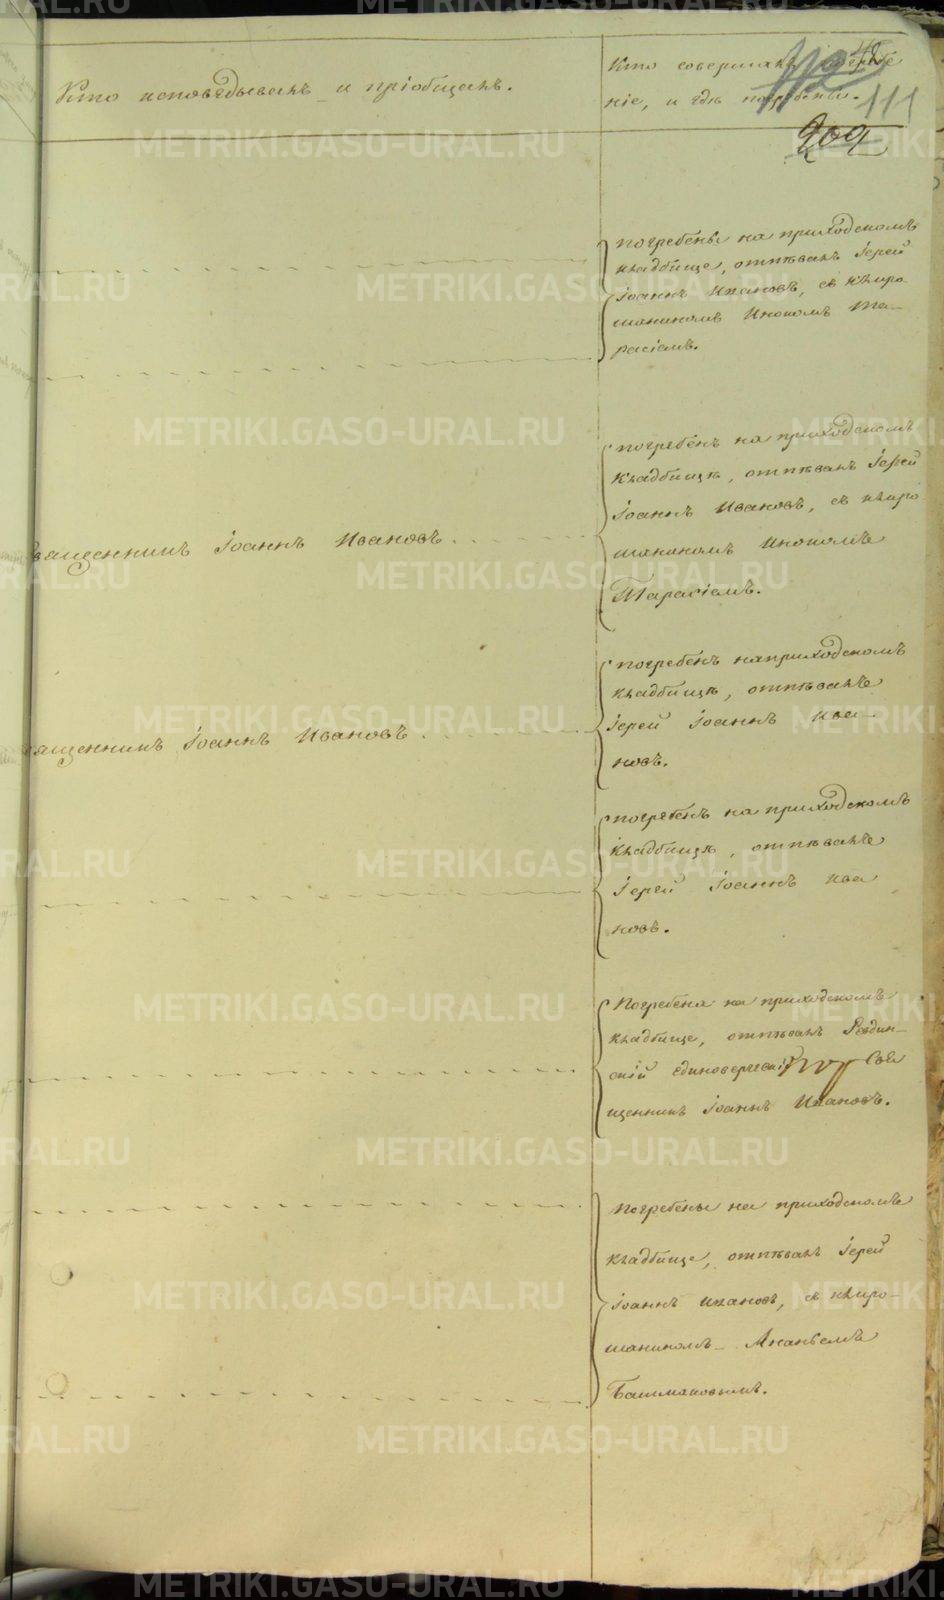 Кто исповѣдывалъ и пріобщалъ.
Кто совершалъ погребе
ніе, и гдѣ погребены.
111
209
погребены на приходскомъ
кладбище, отпѣвалъ Іерей
Іоаннъ Ивановъ, съ клиро
шаниномъ Инокомъ Та-
расіемъ.
погребенъ на приходскомъ
кладбищѣ, отпѣвалъ Іерей
Іоаннъ Ивановъ, съ клиро
шаниномъ Инокомъ
Тарасіемъ.
священникъ Іоаннъ Ивановъ
погребенъ на приходскомъ
кладбищѣ, отпѣвалъ
Іерей Іоаннъ Ива-
новъ.
священникъ Іоаннъ Ивановъ
погребенъ на приходскомъ
кладбищѣ, отпѣвалъ
Іерей Іоаннъ Ива
новъ.
Погребена на приходскомъ
кладбище, отпѣвалъ Ревдин-
скій единоверческій Свя
щенникъ Іоаннъ Ивановъ.
Погребены на приходскомъ
кладбище, отпѣвалъ Іерей
Іоаннъ Ивановъ, съ клиро-
шаниномъ Ананьемъ
Башмаковымъ.
METRIKI.GASO-URAL.RU